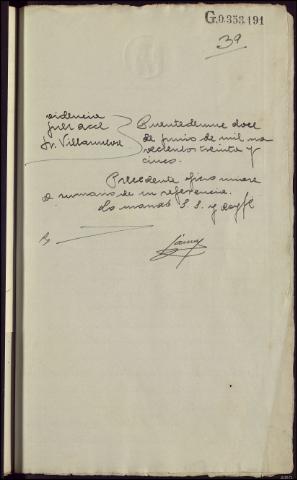 G.0.353.191
39
Juez accl
Sr. Villanueva
Puentedeume doce
de junio de mil no
vecientos treinta y
cinco.
Precedente oficio unase
a sumario de su referencia.
Lo manda S.S. y doy fé